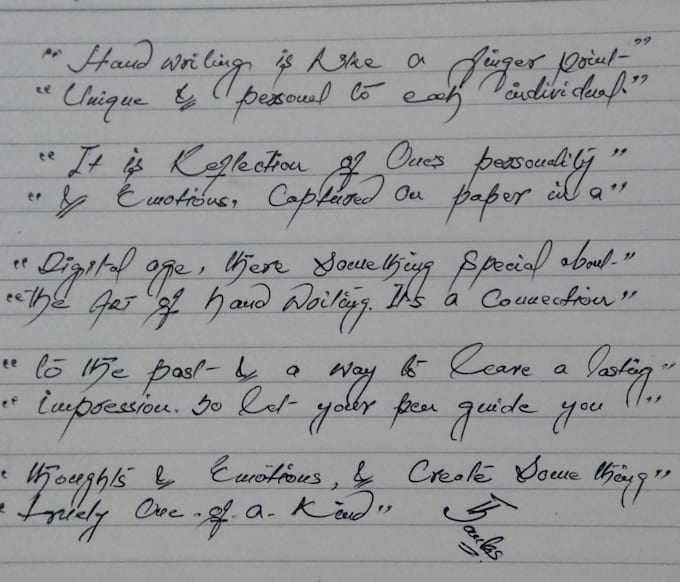 " Hand writing is like a finger point "
" Unique & personal to each individual. "
" It is Reflection of Ones personality "
" & Emotions, Captured on paper in a "
" Digital age, there something special about "
" the Art of hand writing. Its a Connection "
" to the past & a way to leave a lasting "
" impression. so let your pen guide you "
" thoughts & Emotions, & Create some thing "
" truely One-of-a-Kind "
Thanks